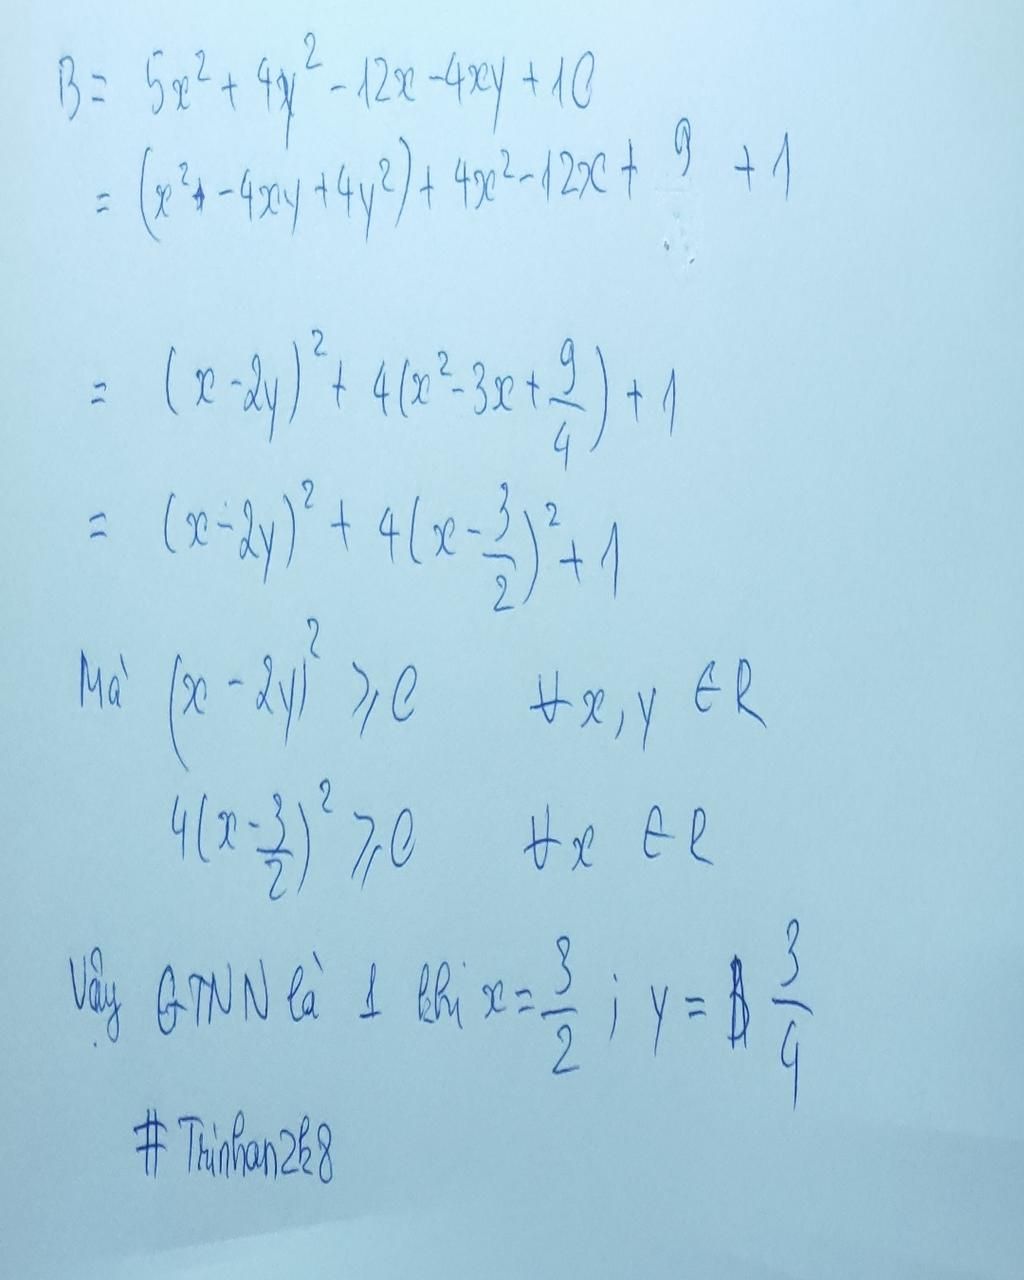 B = 5x² + 4y² - 12x - 4xy + 10
= (x² - 4xy + 4y²) + 4x² - 12x + 9 + 1
= (x - 2y)² + 4(x² - 3x + 9/4) + 1
= (x - 2y)² + 4(x - 3/2)² + 1
Mà (x - 2y)² ⩾ 0 ∀x, y ∈ R
4(x - 3/2)² ⩾ 0 ∀x ∈ R
Vậy GTNN là 1 khi x = 3/2 ; y = 3/4
# Trinhan2k8